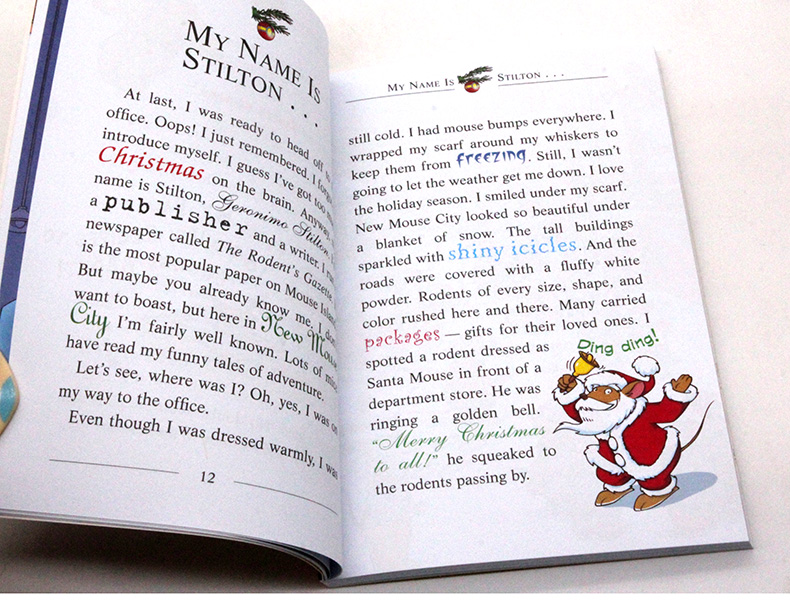 MY NAME IS
STILTON . . .
At last, I was ready to head off to
office. Oops! I just remembered. I
introduce myself. I guess I've got too
Christmas on the brain. Anyway,
name is Stilton, Geronimo Stilton. I
a publisher and a writer. I
newspaper called The Rodent's Gazette.
is the most popular paper on Mouse Island.
But maybe you already know me. I don't
want to boast, but here in New Mouse
City I'm fairly well known. Lots of
have read my funny tales of adventure.
Let's see, where was I? Oh, yes, I was on
my way to the office.
Even though I was dressed warmly, I was
12
MY NAME IS STILTON . . .
still cold. I had mouse bumps everywhere. I
wrapped my scarf around my whiskers to
keep them from freezing. Still, I wasn't
going to let the weather get me down. I love
the holiday season. I smiled under my scarf.
New Mouse City looked so beautiful under
a blanket of snow. The tall buildings
sparkled with shiny icicles. And the
roads were covered with a fluffy white
powder. Rodents of every size, shape, and
color rushed here and there. Many carried
packages — gifts for their loved ones. I
spotted a rodent dressed as
Santa Mouse in front of a
department store. He was
ringing a golden bell.
"Merry Christmas
to all!" he squeaked to
the rodents passing by.
Ding ding!